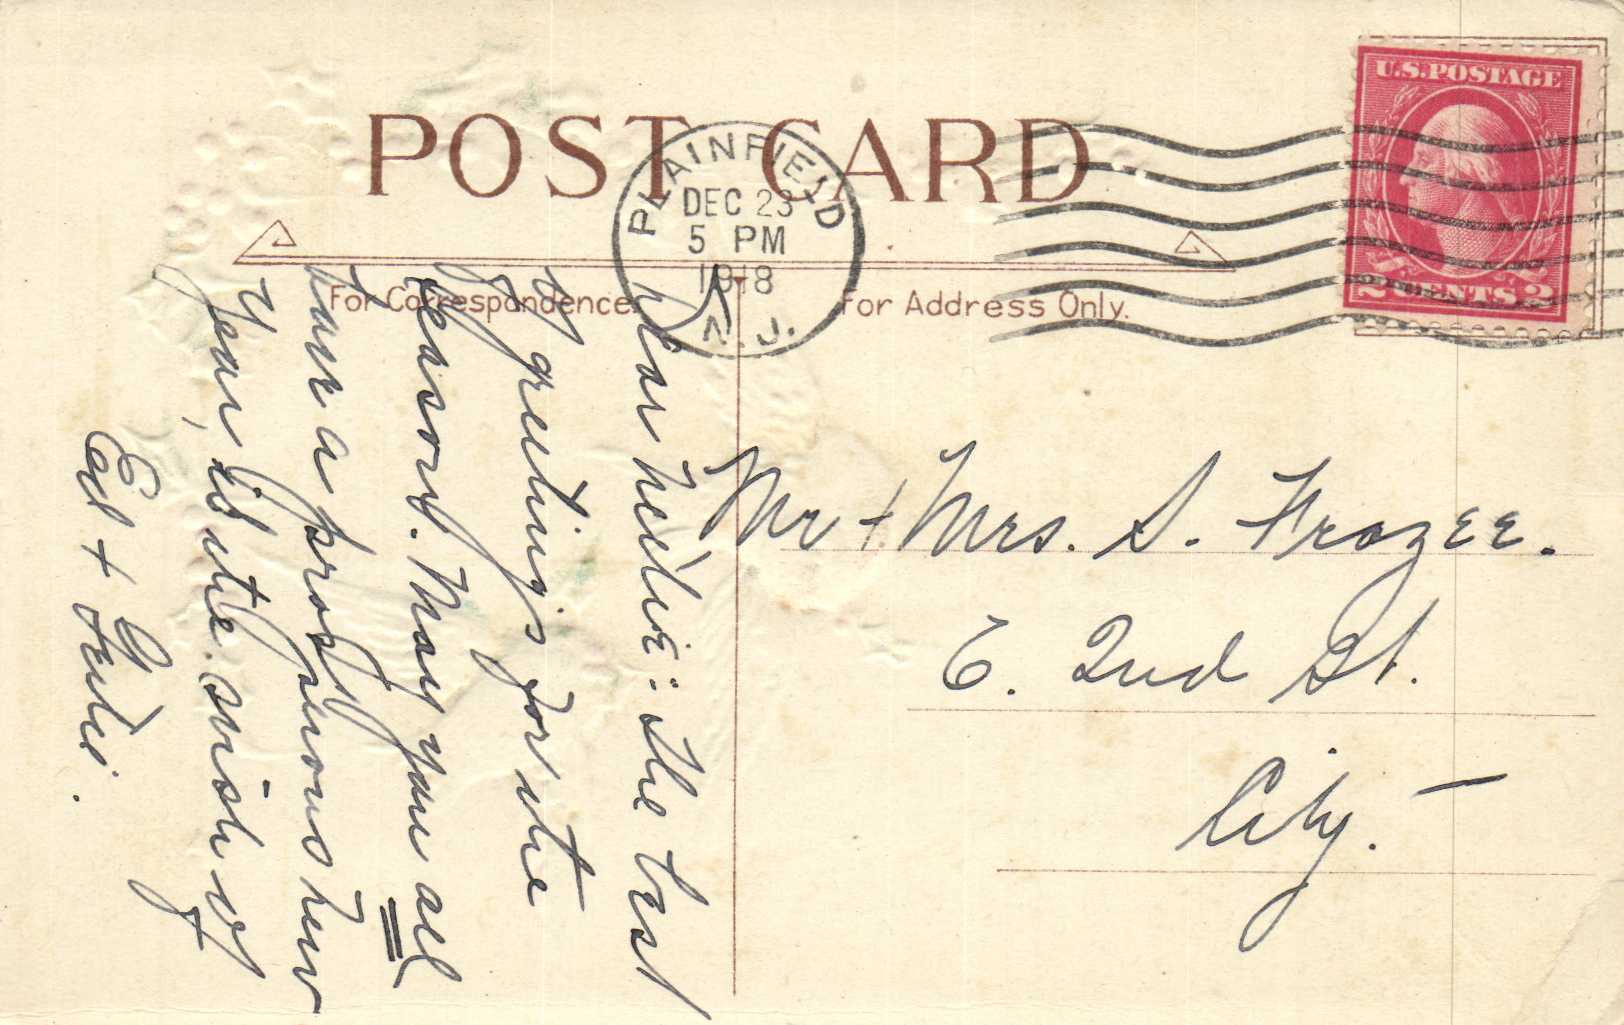 POST CARD
U.S. POSTAGE
2 CENTS 2
PLAINFIELD
DEC 23
5 PM
1918
N.J.
For Correspondence.
For Address Only.
Dear Nellie: The best
of greetings for the
season. May you all
have a prosperous new
Year, is the wish of
Ed +
Mr + Mrs. S. Frazee.
E. 2nd St.
City. —